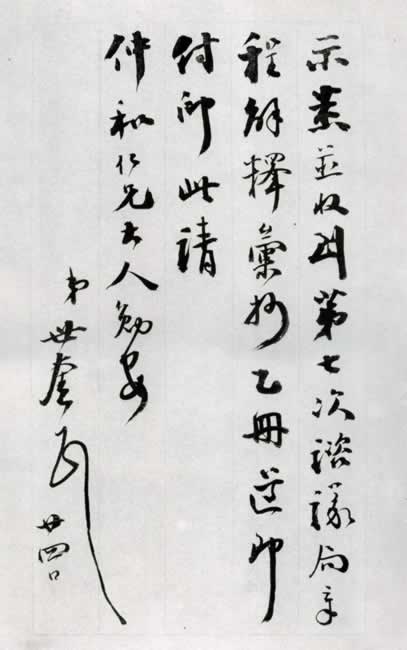 示悉並收到第七次諮議局章
程解釋彙抄乙冊遵即
付印此請
仲和仁兄大人勛安
弟世奎 廿四日